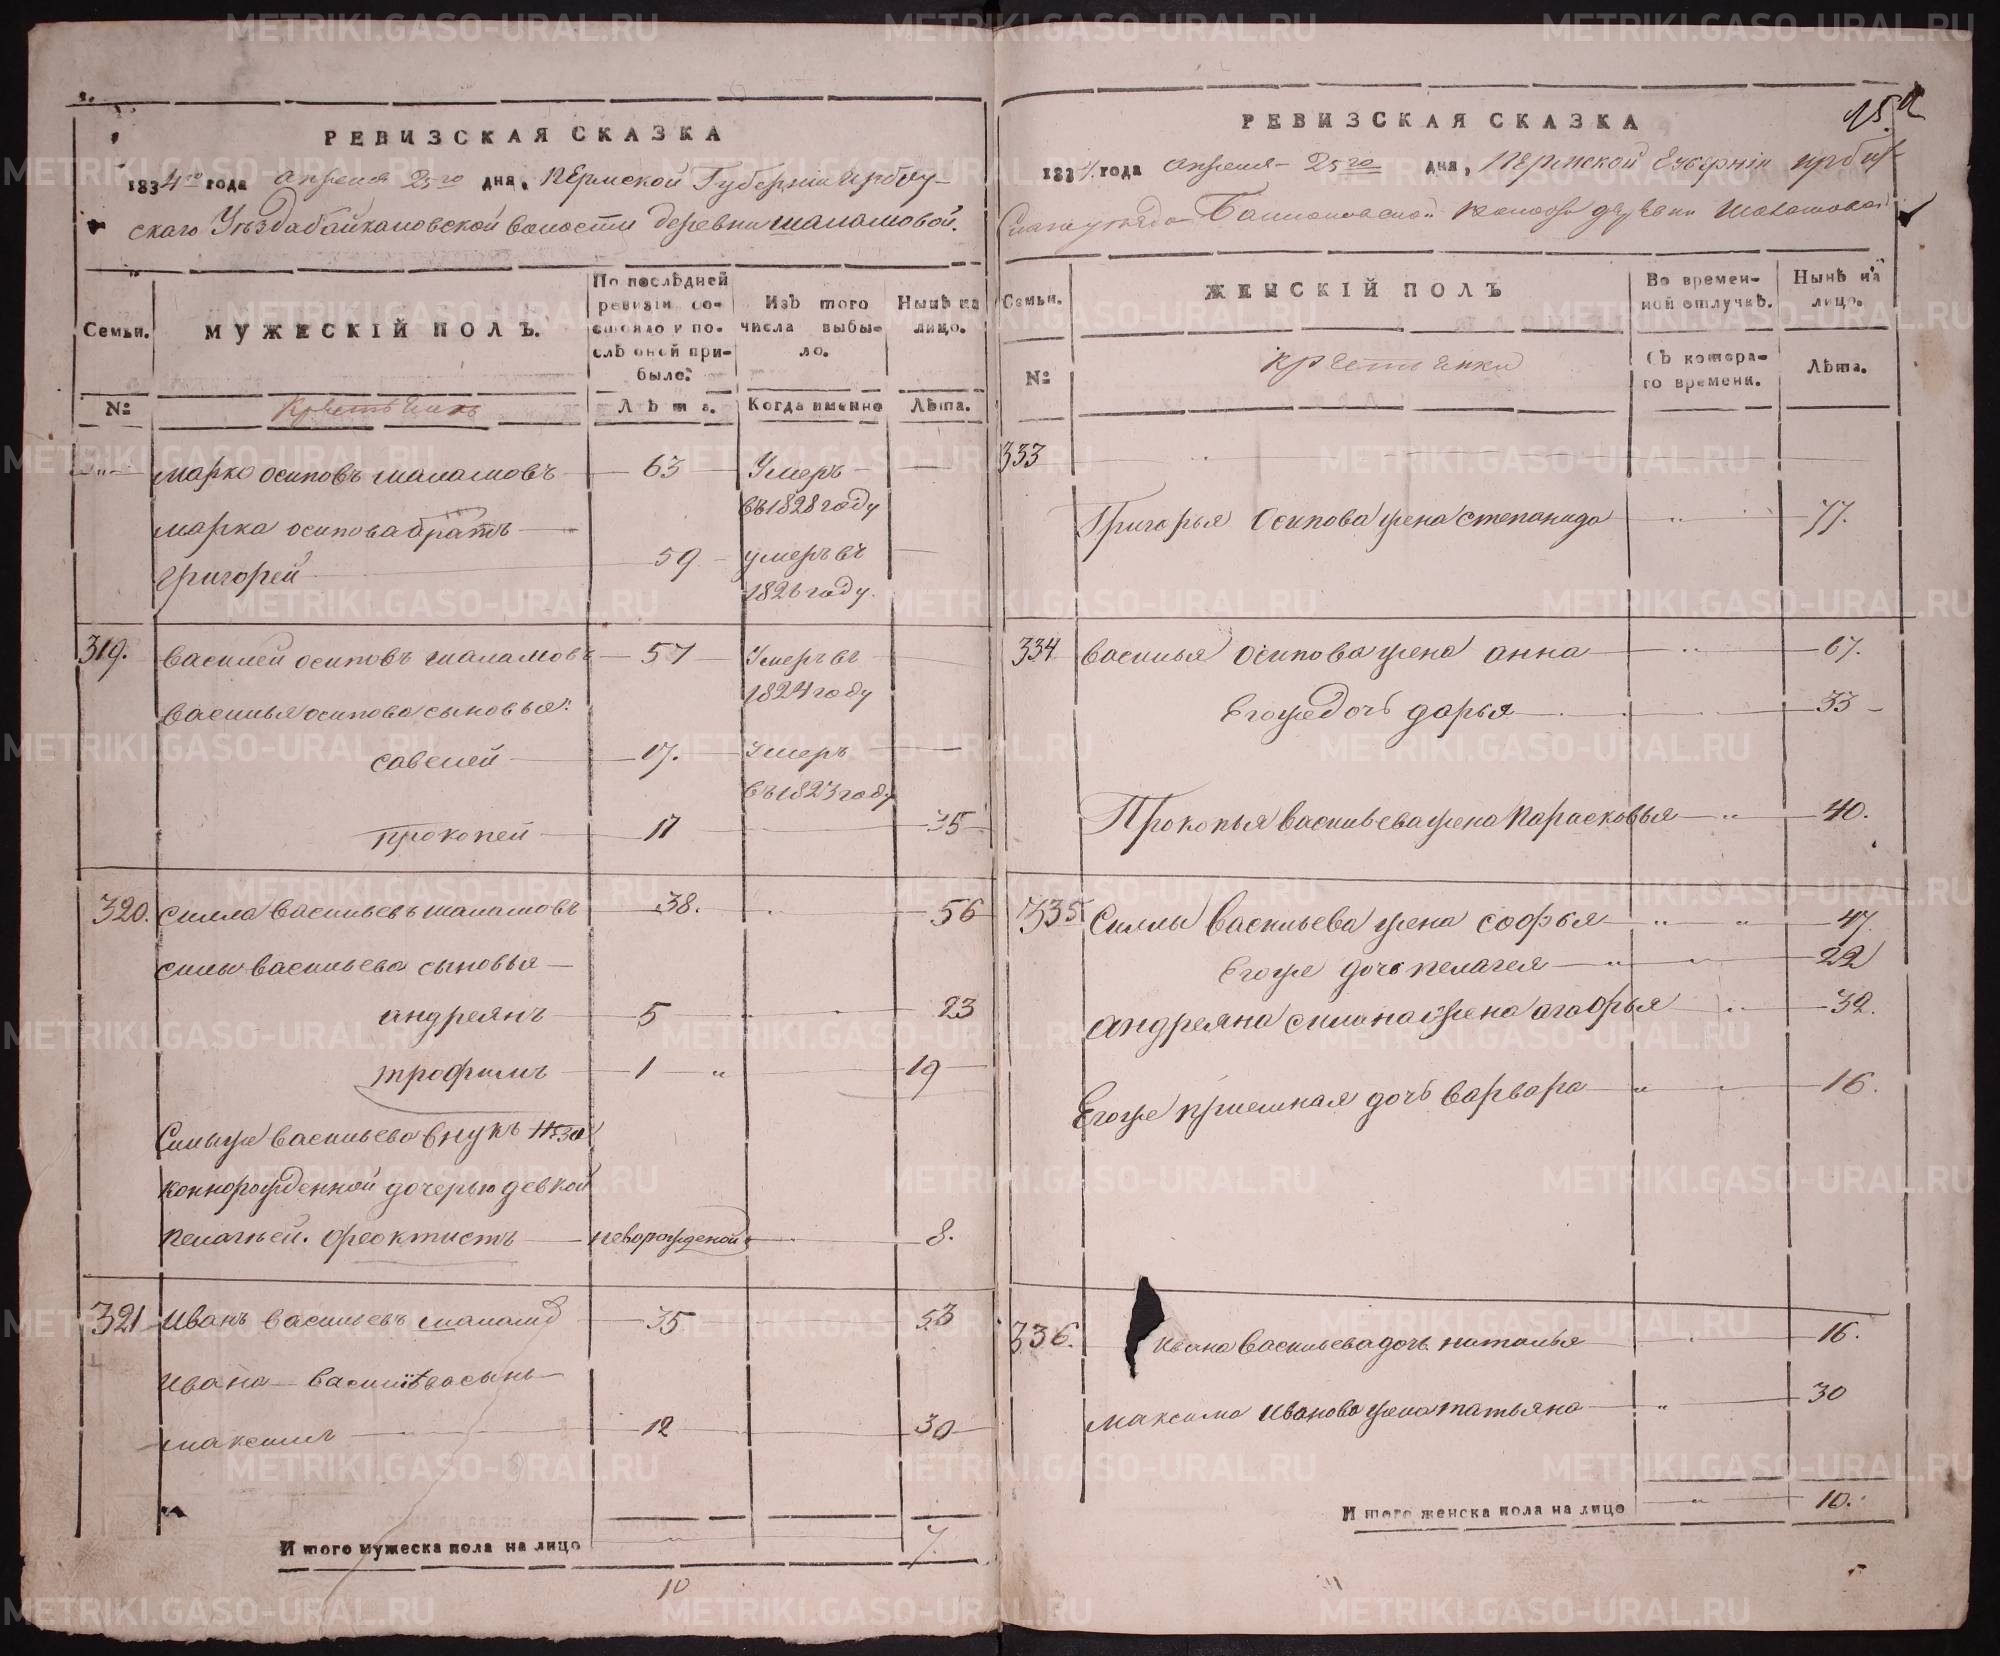 РЕВИЗСКАЯ СКАЗКА
1834го года апреля 25го дня, Пермской Губернiи ирбит-
скаго Уѣзда байкаловской волости деревни шаламовой.
Семьи.
МУЖЕСКІЙ ПОЛЪ.
По послѣдней ревизiи состояло и послѣ оной прибыло.
Изъ того числа выбыло.
Нынѣ на лицо.
№
Крестьянъ
Лѣта.
Когда именно
Лѣта.
марко осиповъ шаламовъ 63 Умеръ
въ 1828 году
марка осипова братъ
григорей 59 умеръ въ
1826 году.
319. василей осиповъ шаламовъ 57 Умеръ въ
1824 году
василья осипова сыновья:
савелей 17. Умеръ
въ 1823 году
прокопей 17 35
320. силла васильевъ шаламовъ 38. 56
силы васильева сыновья
андреянъ 5 23
трофимъ 1 " 19
Силы же васильева внукъ неза
коннорожденной дочерью девкой
пелагьей. феоктистъ новорожденой 8.
321 Иванъ васильевъ шаламов 35 53
ивана васильева сынъ
максимъ 12 30
Итого мужеска пола на лицо 7.
10
РЕВИЗСКАЯ СКАЗКА
15.
1834. года апреля 25го дня, Пермской Губернiи ирбит-
Скаго уезда Байкаловской волости деревни Шаламовой
Семьи.
ЖЕНСКІЙ ПОЛЪ
Во временной отлучкѣ.
Нынѣ на лицо.
№
крестьянки
Съ котораго времени.
Лѣта.
333
Григорья Осипова жена степанида " 77.
334 василья осипова жена анна " 67.
Егоже дочь дарья 33
Прокопья васильева жена Парасковья " 40.
335 Силлы васильева жена софья " " 47.
Егоже дочь пелагея " " 22
андреяна силина жена агафья " 32.
Егоже приемная дочь варвара " 16.
336. Ивана васильева дочь наталья " 16.
максима иванова жена татьяна " 30
Итого женска пола на лицо " 10.
METRIKI.GASO-URAL.RU